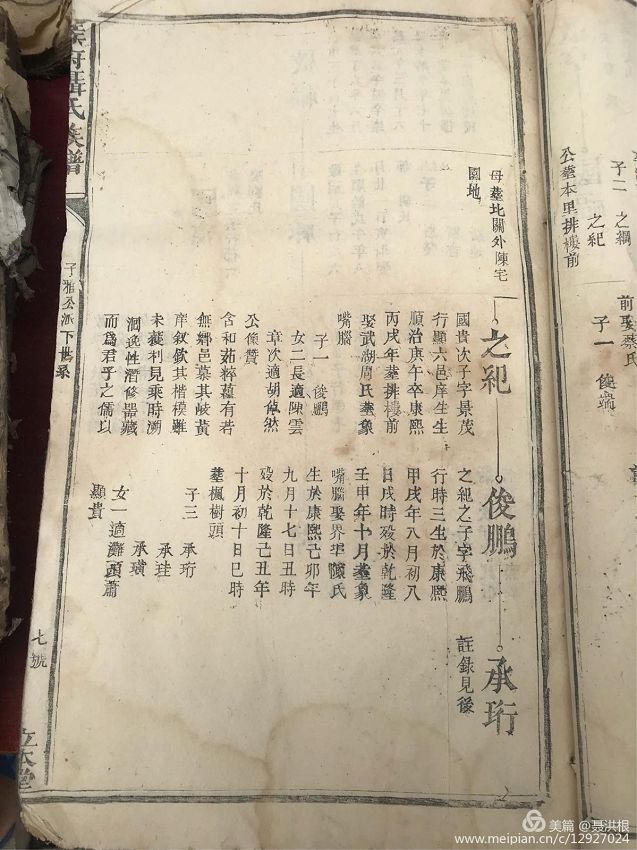 子二 之綱
之紀
公塟本里排樓前
前娶蔡氏
子一 俊端
母塟北關外陳宅
園地
之紀
國貴次子字景茂
行顯六邑庠生生
順治庚午卒康熙
丙戌年塟排樓前
娶武湖周氏塟象
嘴腦
子一 俊鵬
女二長適陳雲
章次適胡倬然
公像贊
含和茹粹蘊有若
無鄉邑慕其岐黃
庠欽其楷模雖
未獲利見乘時溯
洄逸性潛修器藏
而為君子之儒以
俊鵬
之紀之子字飛鵬
行時三生於康熙
甲戌年八月初八
日戌時殁於乾隆
壬申年十月塟象
嘴腦娶界牢陳氏
生於康熙己卯年
九月十七日丑時
殁於乾隆己丑年
十月初十日巳時
塟楓樹頭
子三 承珩
承珪
承璜
女一適灘頭蕭
顯貴
承珩
註錄見後
聶氏族譜
子雅公派下世系
七號
美篇 @聂洪根
www.meipian.cn/c/12927024